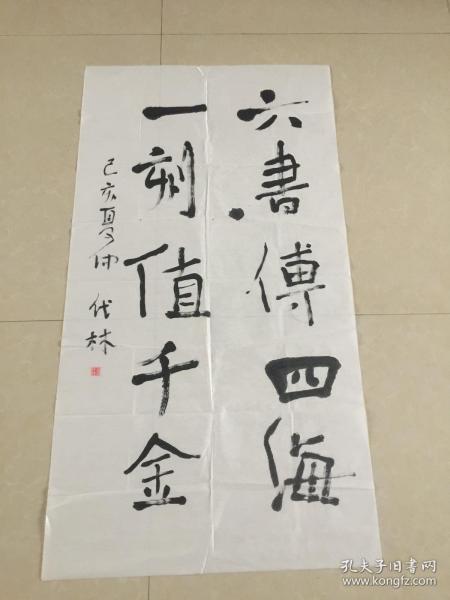 六書傳四海
一刻值千金
己亥夏仲 代林
孔夫子旧书网
www.kongfz.com